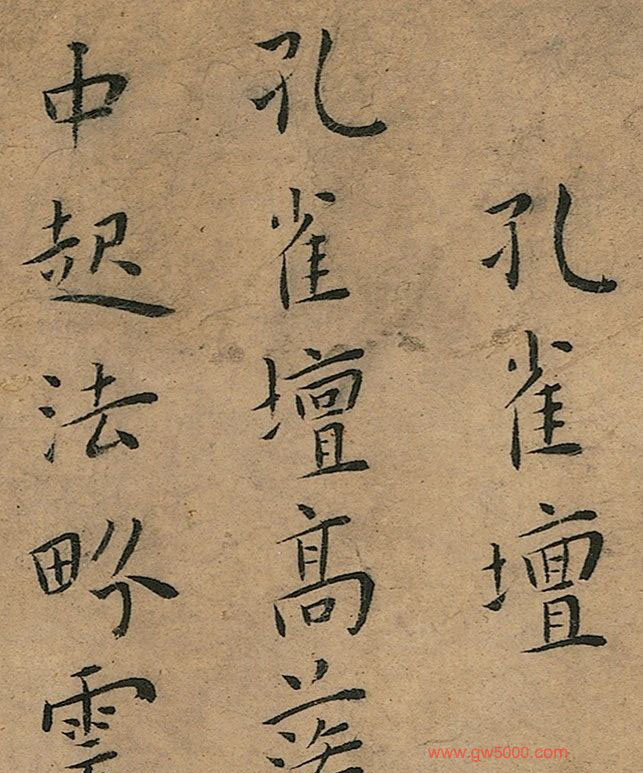 孔雀壇
孔雀壇高
中起法畧雲
www.gw5000.com